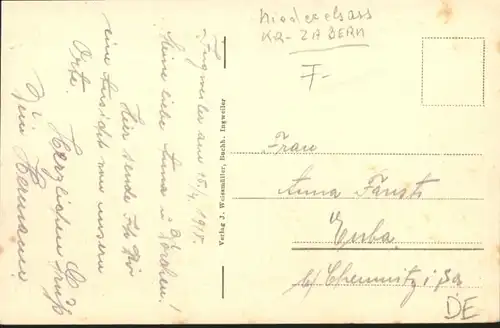 Niederelsass
KR-ZABERN
F-
Ingweiler am 15/4 1918.
Meine liebe Anna u. Dorchen!
Hier sende Ich Dir
eine Ansicht von unserm
Orte. Herzlichen Gruß
Dein Hermann
Verlag J. Weissmüller, Buchh. Ingweiler
Frau
Anna Faust
Euba
b/ Chemnitz i/Sa
DE